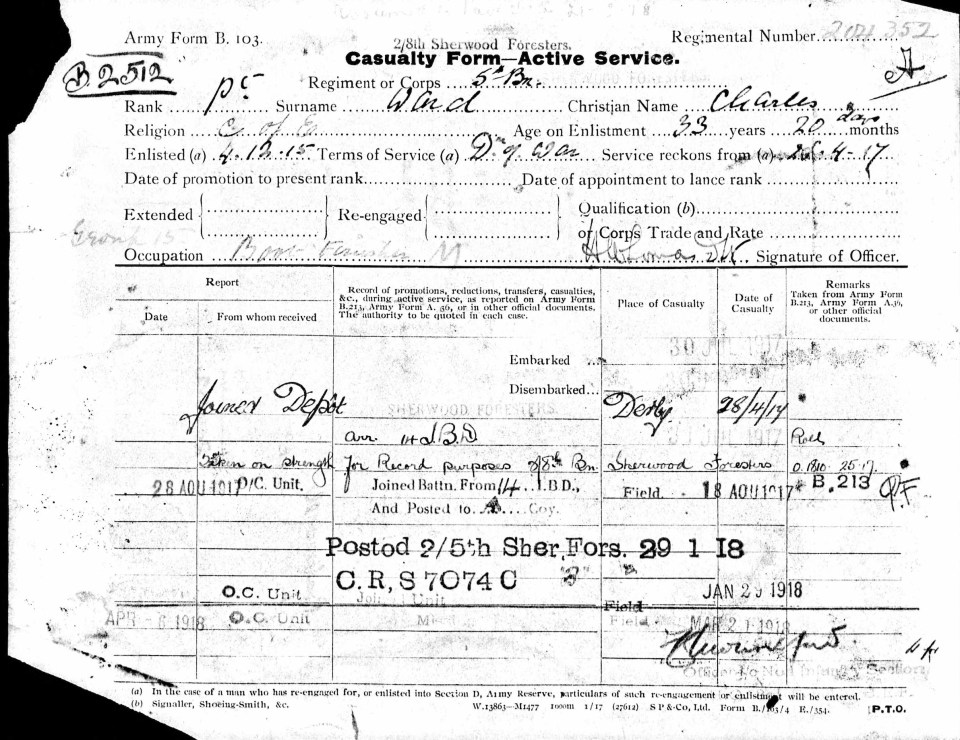 Army Form B. 103.
2/8th Sherwood Foresters.
Regimental Number
Casualty Form—Active Service.
B.2512
Regiment or Corps 5th Bn.
Rank Pte Surname Ward Christian Name Charles
Religion C. of E. Age on Enlistment 33 years 20 days months
Enlisted (a) 4-12-15 Terms of Service (a) D of War Service reckons from (a) 4-17
Date of promotion to present rank Date of appointment to lance rank
Extended Re-engaged Qualification (b)
or Corps Trade and Rate
Group 15
Occupation Boot Finisher Signature of Officer.
Report
Date
From whom received
Record of promotions, reductions, transfers, casualties, &c., during active service, as reported on Army Form B.213, Army Form A. 36, or in other official documents. The authority to be quoted in each case.
Place of Casualty
Date of Casualty
Remarks
Taken from Army Form B.213, Army Form A.36, or other official documents.
Embarked 30 JUL 1917
Disembarked
Joined Depôt Derby 28/4/17
SHERWOOD FORESTERS
arr. 14 I.B.D. JUL 1917 Roll
Taken on strength for Record purposes 2/8th Bn Sherwood Foresters
28 AOU 1917 O/C. Unit. Joined Battn. From 14 I.B.D., Field. 18 AOU 1917 B.213
And Posted to Coy.
Posted 2/5th Sher. Fors. 29 1 18
C.R, S 7074 C
O.C. Unit Field JAN 29 1918
APR - 6 1918 O.C. Unit Field MAR 21 1918
(a) In the case of a man who has re-engaged for, or enlisted into Section D, Army Reserve, particulars of such re-engagement or enlistment will be entered.
(b) Signaller, Shoeing-Smith, &c. W.13863—M1477 1000m 1/17 (27612) S P & Co, Ltd. Form B./103/4 E./354. P.T.O.